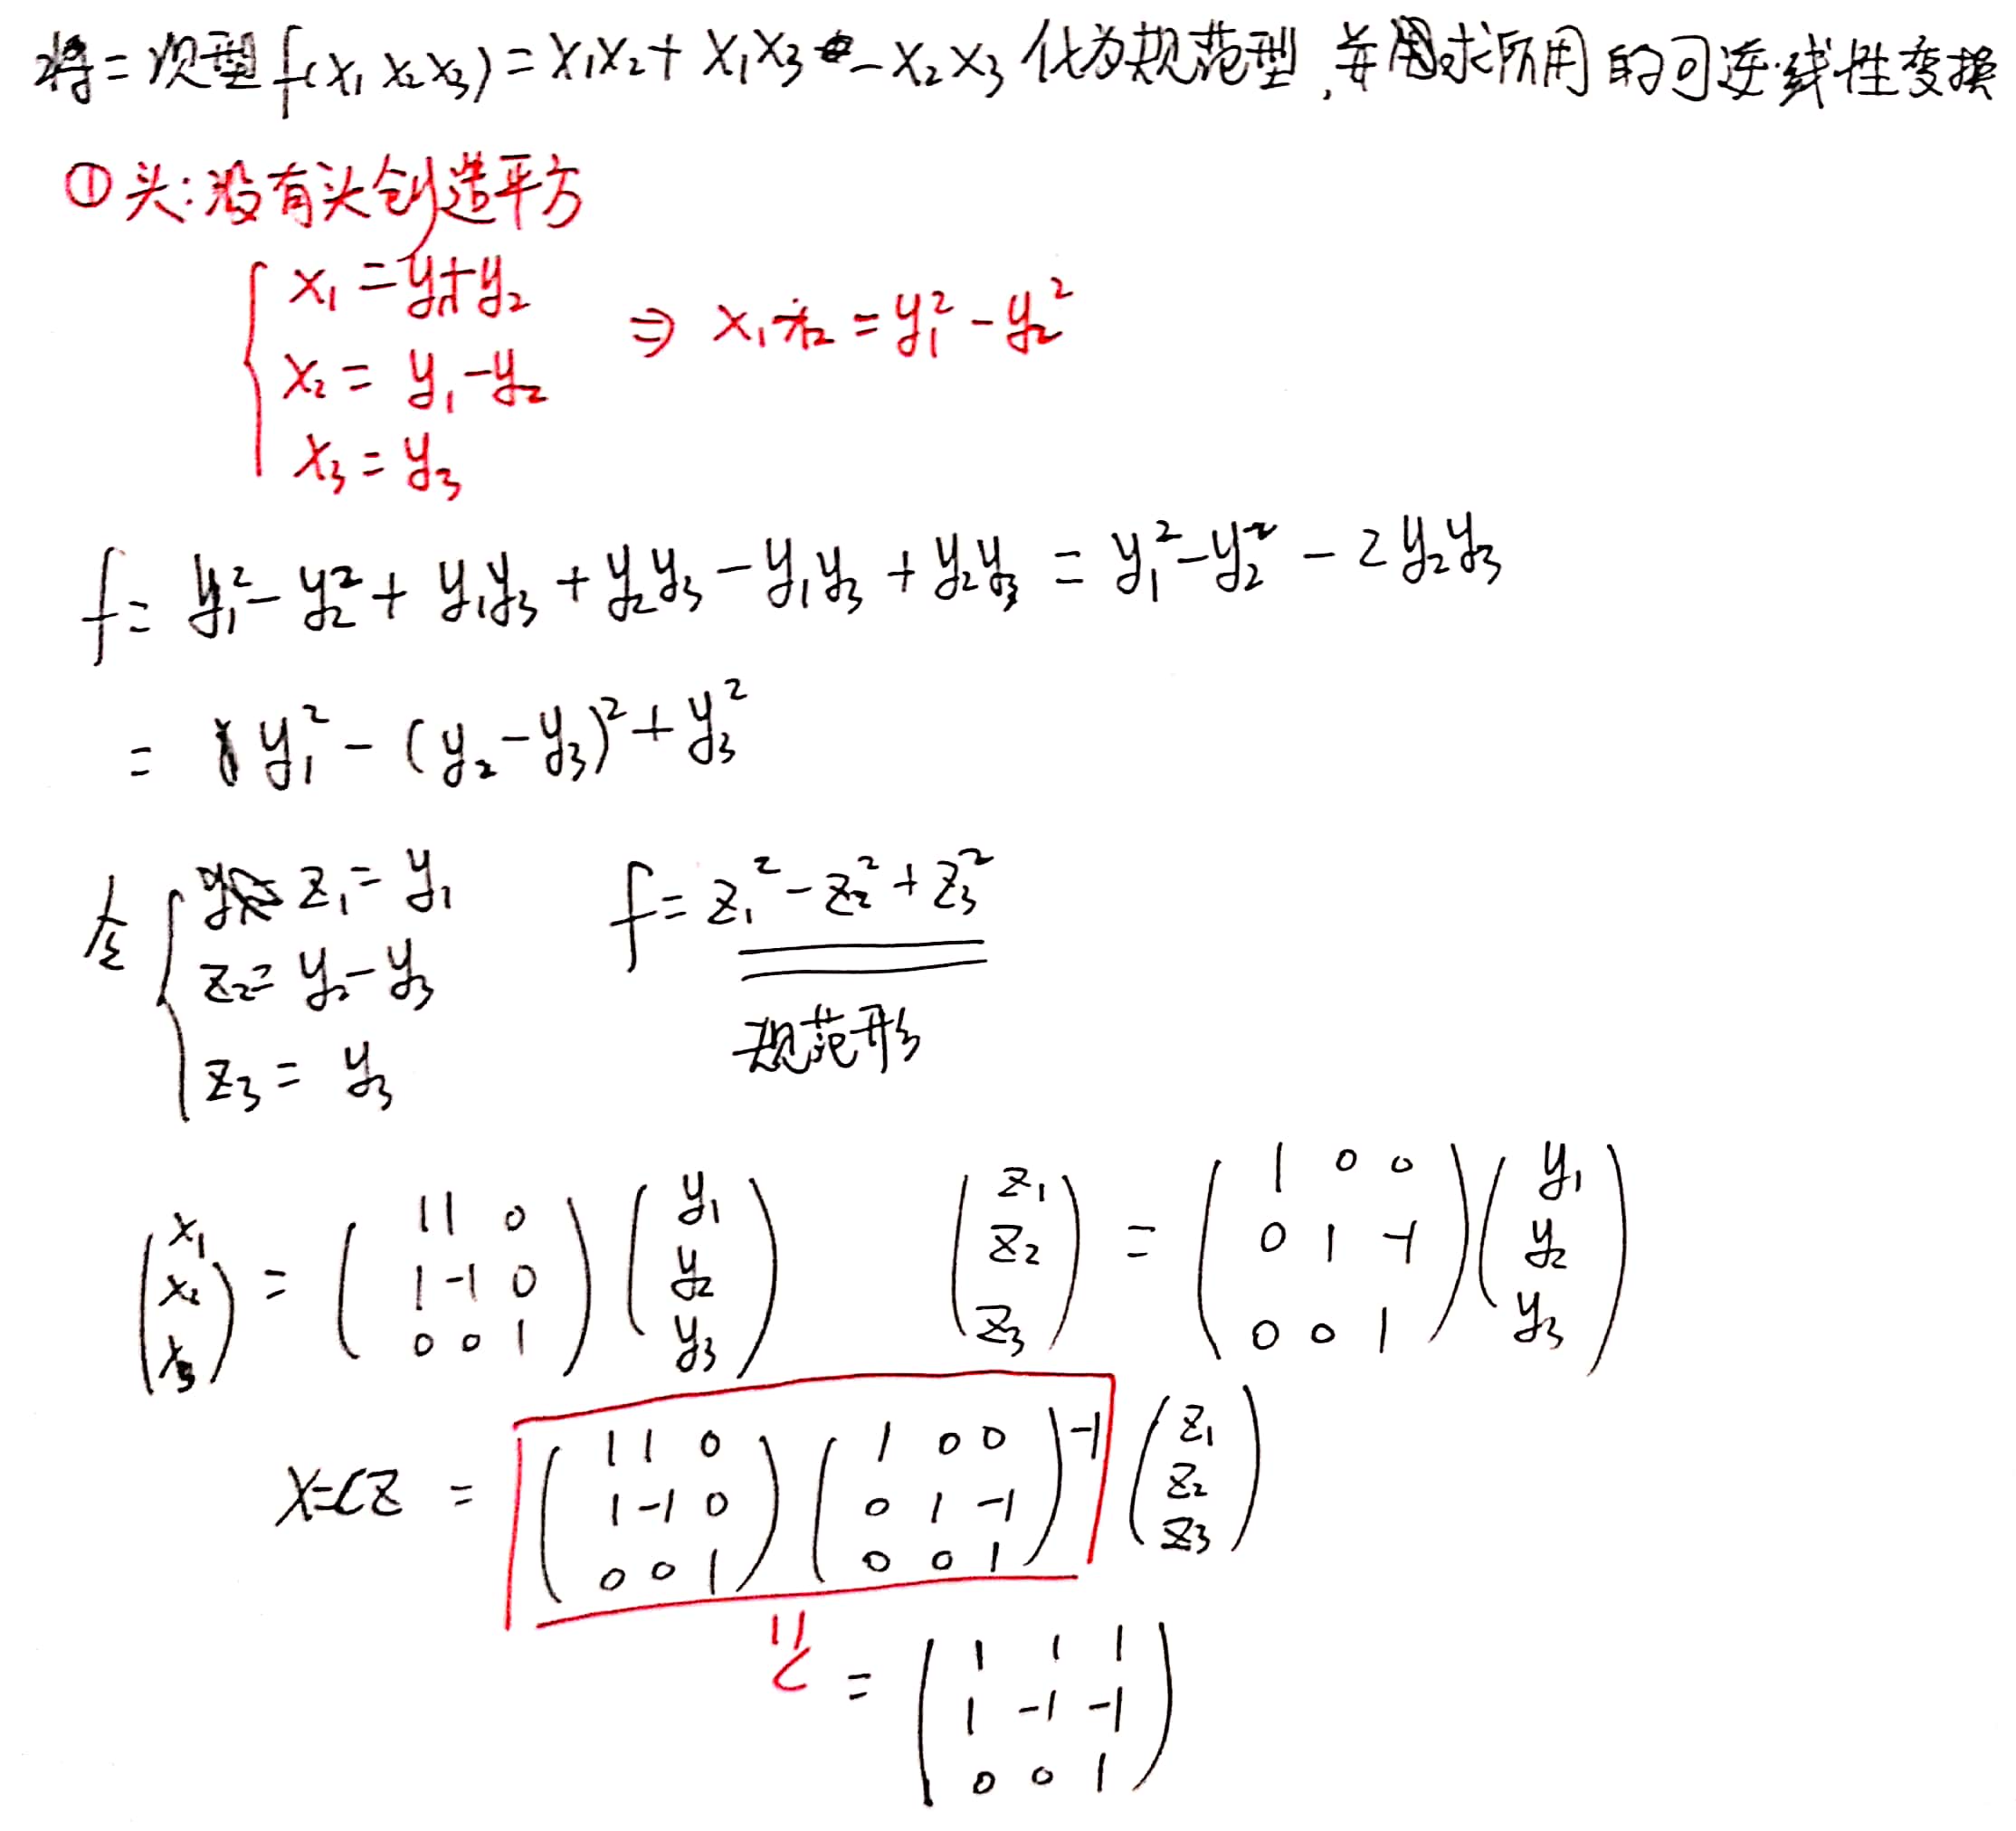 将二次型 f(x₁ x₂ x₃) = x₁x₂ + x₁x₃ - x₂x₃ 化为规范型, 并求所用的可逆线性变换
① 头: 没有头创造平方
x₁ = y₁+y₂
x₂ = y₁-y₂ ⇒ x₁x₂ = y₁² - y₂²
x₃ = y₃
f = y₁² - y₂² + y₁y₃ + y₂y₃ - y₁y₃ + y₂y₃ = y₁² - y₂² - 2y₂y₃
= y₁² - (y₂ - y₃)² + y₃²
令 { z₁ = y₁
z₂ = y₂ - y₃
z₃ = y₃
f = z₁² - z₂² + z₃²
规范形
(x₁ x₂ x₃) = (1 1 0; 1 -1 0; 0 0 1)(y₁ y₂ y₃) (z₁ z₂ z₃) = (1 0 0; 0 1 -1; 0 0 1)(y₁ y₂ y₃)
X=CZ = (1 1 0; 1 -1 0; 0 0 1)(1 0 0; 0 1 -1; 0 0 1)⁻¹(z₁ z₂ z₃)
॥
C = (1 1 1; 1 -1 -1; 0 0 1)